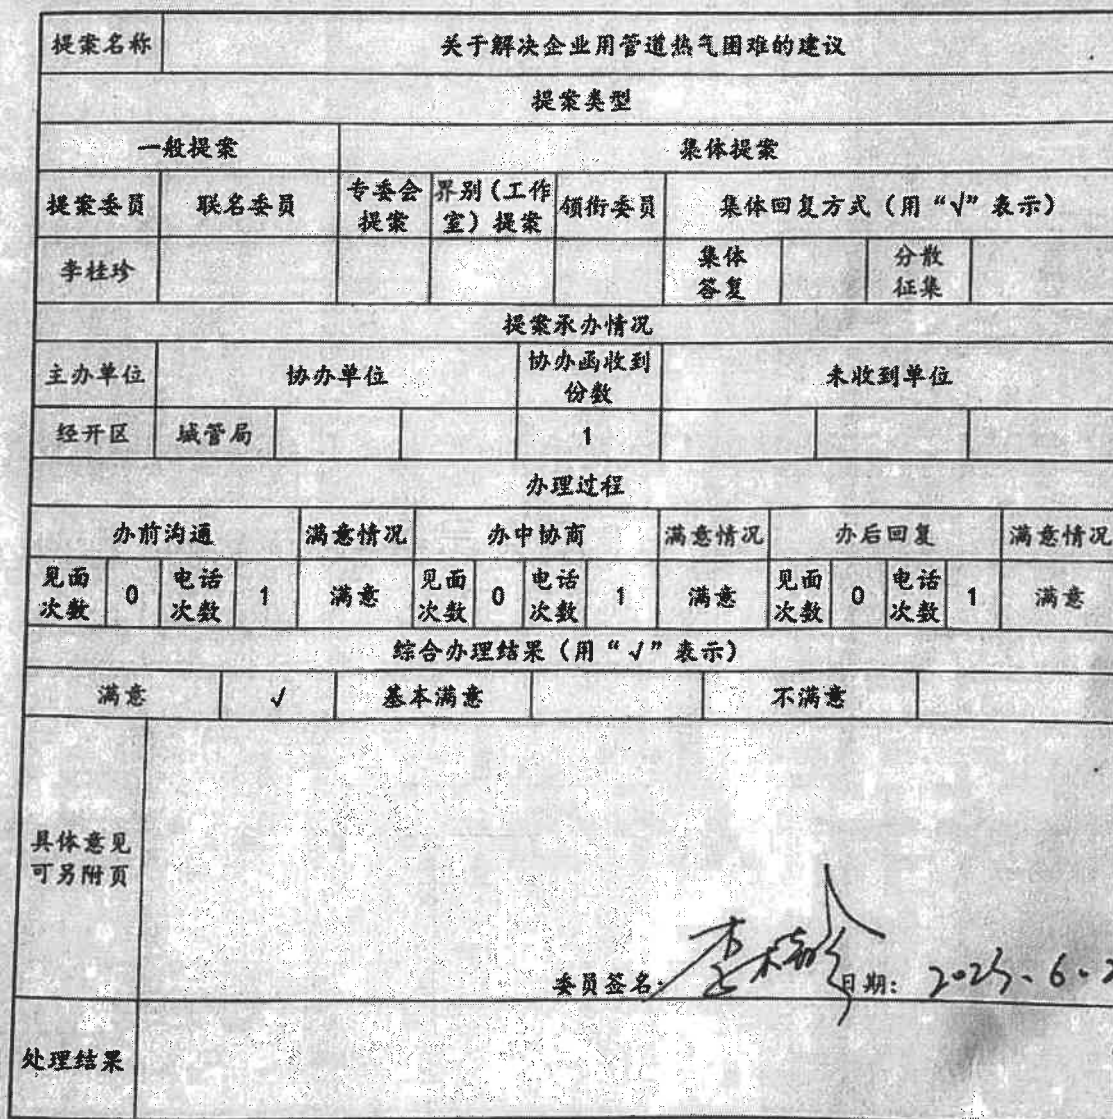 提案名称 关于解决企业用管道热气困难的建议
提案类型
一般提案 集体提案
提案委员 联名委员 专委会提案 界别（工作室）提案 领衔委员 集体回复方式（用“√”表示）
李桂珍 集体答复 分散征集
提案承办情况
主办单位 协办单位 协办函收到份数 未收到单位
经开区 城管局 1
办理过程
办前沟通 满意情况 办中协商 满意情况 办后回复 满意情况
见面次数 0 电话次数 1 满意 见面次数 0 电话次数 1 满意 见面次数 0 电话次数 1 满意
综合办理结果（用“√”表示）
满意 √ 基本满意 不满意
具体意见
可另附页
委员签名： 李桂珍 日期： 2025.6.
处理结果